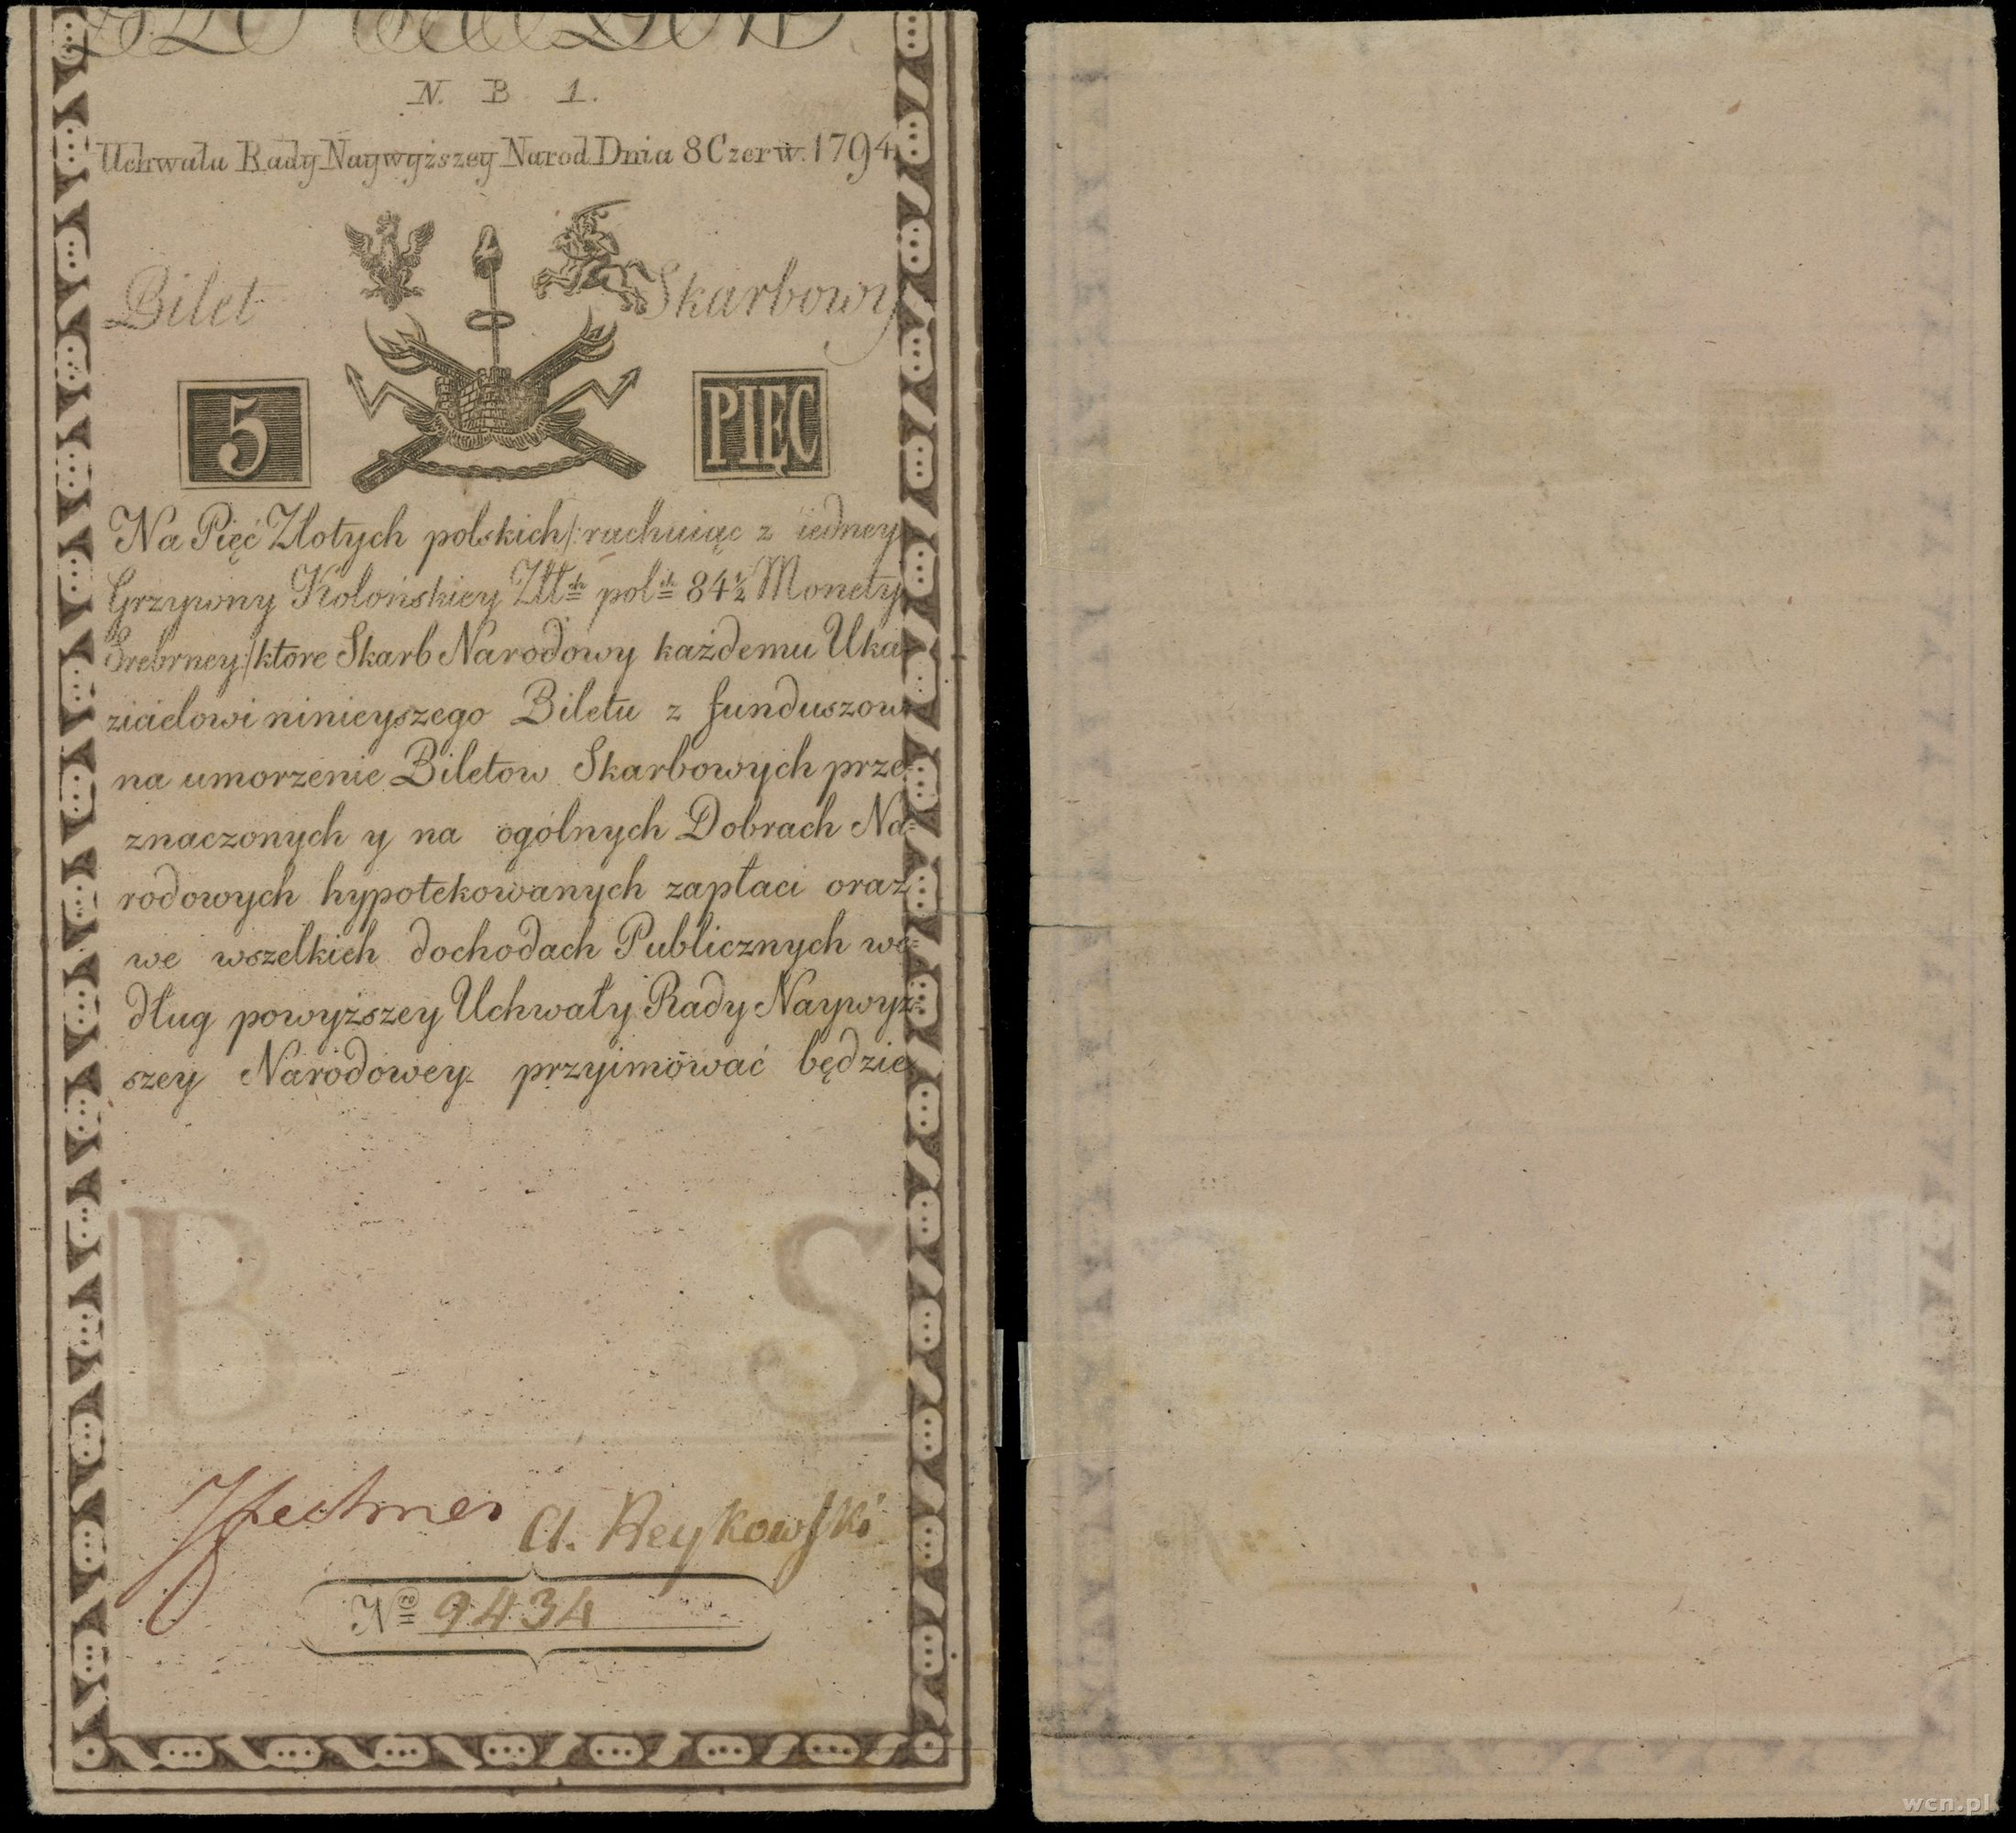 N. B 1.
Uchwała Rady Naywyższey Narod Dnia 8 Czerw. 1794.
Bilet Skarbowy
5 PIĘC
Na Pięć Złotych polskich /: rachuiąc z iedney
Grzywny Kolońskiey Złł:ch pol:ch 84 1/2 Monety
Srebrney :/ ktore Skarb Narodowy każdemu Uka
zicielowi ninieyszego Biletu z funduszow
na umorzenie Biletow Skarbowych prze=
znaczonych y na ogólnych Dobrach Na=
rodowych hypotekowanych zapłaci oraz
we wszelkich dochodach Publicznych we=
dług powyższey Uchwały Rady Naywyż=
szey Narodowey przyimować będzie
B S
A. Reykowski
No 9434
wcn.pl